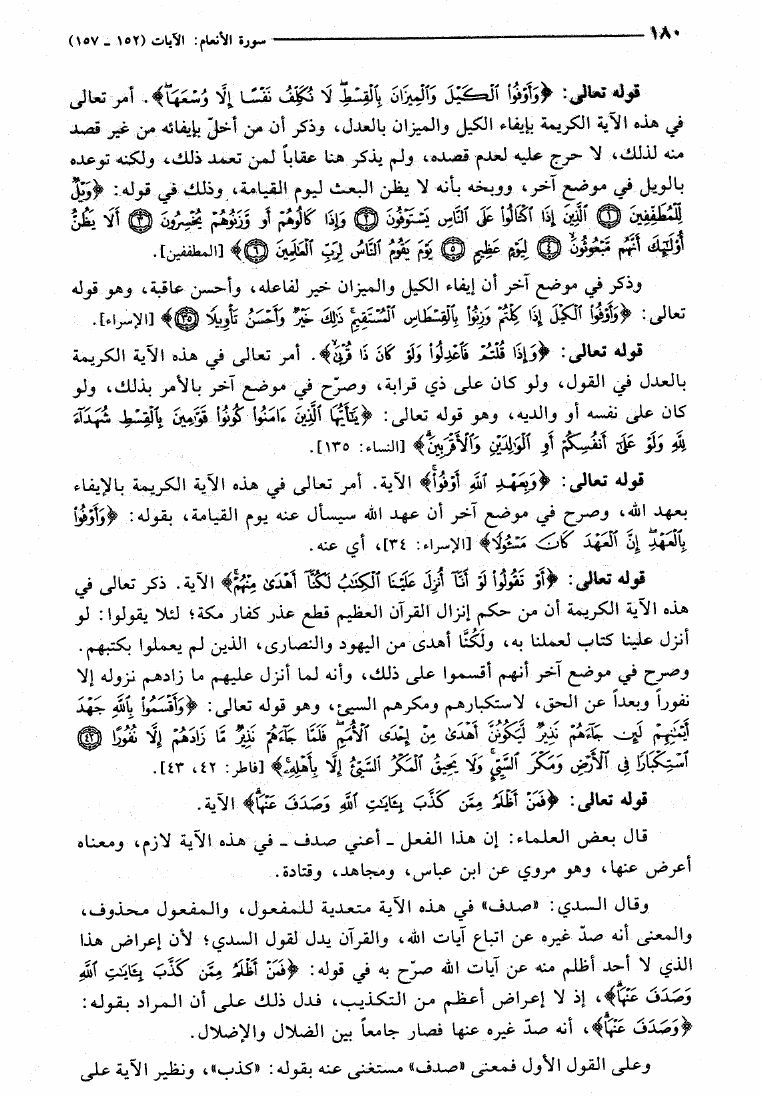 ١٨٠ سورة الأنعام: الآيات (١٥٢ ـ ١٥٧)
قوله تعالى: ﴿وَأَوْفُوا۟ ٱلْكَيْلَ وَٱلْمِيزَانَ بِٱلْقِسْطِ لَا نُكَلِّفُ نَفْسًا إِلَّا وُسْعَهَا﴾. أمر تعالى
في هذه الآية الكريمة بإيفاء الكيل والميزان بالعدل، وذكر أن من أخلّ بإيفائه من غير قصد
منه لذلك، لا حرج عليه لعدم قصده، ولم يذكر هنا عقاباً لمن تعمد ذلك، ولكنه توعده
بالويل في موضع آخر، ووبخه بأنه لا يظن البعث ليوم القيامة، وذلك في قوله: ﴿وَيْلٌ
لِّلْمُطَفِّفِينَ ۝١ ٱلَّذِينَ إِذَا ٱكْتَالُوا۟ عَلَى ٱلنَّاسِ يَسْتَوْفُونَ ۝٢ وَإِذَا كَالُوهُمْ أَو وَّزَنُوهُمْ يُخْسِرُونَ ۝٣ أَلَا يَظُنُّ
أُو۟لَٰٓئِكَ أَنَّهُم مَّبْعُوثُونَ ۝٤ لِيَوْمٍ عَظِيمٍ ۝٥ يَوْمَ يَقُومُ ٱلنَّاسُ لِرَبِّ ٱلْعَٰلَمِينَ ۝٦﴾ [المطففين].
وذكر في موضع آخر أن إيفاء الكيل والميزان خير لفاعله، وأحسن عاقبة، وهو قوله
تعالى: ﴿وَأَوْفُوا۟ ٱلْكَيْلَ إِذَا كِلْتُمْ وَزِنُوا۟ بِٱلْقِسْطَاسِ ٱلْمُسْتَقِيمِ ذَٰلِكَ خَيْرٌ وَأَحْسَنُ تَأْوِيلًا ۝٣٥﴾ [الإسراء].
قوله تعالى: ﴿وَإِذَا قُلْتُمْ فَٱعْدِلُوا۟ وَلَوْ كَانَ ذَا قُرْبَىٰ﴾. أمر تعالى في هذه الآية الكريمة
بالعدل في القول، ولو كان على ذي قرابة، وصرّح في موضع آخر بالأمر بذلك، ولو
كان على نفسه أو والديه، وهو قوله تعالى: ﴿يَٰٓأَيُّهَا ٱلَّذِينَ ءَامَنُوا۟ كُونُوا۟ قَوَّٰمِينَ بِٱلْقِسْطِ شُهَدَآءَ
لِلَّهِ وَلَوْ عَلَىٰٓ أَنفُسِكُمْ أَوِ ٱلْوَٰلِدَيْنِ وَٱلْأَقْرَبِينَ﴾ [النساء: ١٣٥].
قوله تعالى: ﴿وَبِعَهْدِ ٱللَّهِ أَوْفُوا۟﴾ الآية. أمر تعالى في هذه الآية الكريمة بالإيفاء
بعهد الله، وصرح في موضع آخر أن عهد الله سيسأل عنه يوم القيامة، بقوله: ﴿وَأَوْفُوا۟
بِٱلْعَهْدِ إِنَّ ٱلْعَهْدَ كَانَ مَسْـُٔولًا﴾ [الإسراء: ٣٤]، أي عنه.
قوله تعالى: ﴿أَوْ تَقُولُوا۟ لَوْ أَنَّآ أُنزِلَ عَلَيْنَا ٱلْكِتَٰبُ لَكُنَّآ أَهْدَىٰ مِنْهُمْ﴾ الآية. ذكر تعالى في
هذه الآية الكريمة أن من حكم إنزال القرآن العظيم قطع عذر كفار مكة؛ لئلا يقولوا: لو
أنزل علينا كتاب لعملنا به، ولَكُنَّا أهدى من اليهود والنصارى، الذين لم يعملوا بكتبهم.
وصرح في موضع آخر أنهم أقسموا على ذلك، وأنه لما أنزل عليهم ما زادهم نزوله إلا
نفوراً وبعداً عن الحق، لاستكبارهم ومكرهم السيئ، وهو قوله تعالى: ﴿وَأَقْسَمُوا۟ بِٱللَّهِ جَهْدَ
أَيْمَٰنِهِمْ لَئِن جَآءَهُمْ نَذِيرٌ لَّيَكُونُنَّ أَهْدَىٰ مِنْ إِحْدَى ٱلْأُمَمِ فَلَمَّا جَآءَهُمْ نَذِيرٌ مَّا زَادَهُمْ إِلَّا نُفُورًا ۝٤٢
ٱسْتِكْبَارًا فِى ٱلْأَرْضِ وَمَكْرَ ٱلسَّيِّئِ وَلَا يَحِيقُ ٱلْمَكْرُ ٱلسَّيِّئُ إِلَّا بِأَهْلِهِۦ﴾ [فاطر: ٤٢، ٤٣].
قوله تعالى: ﴿فَمَنْ أَظْلَمُ مِمَّن كَذَّبَ بِـَٔايَٰتِ ٱللَّهِ وَصَدَفَ عَنْهَا﴾ الآية.
قال بعض العلماء: إن هذا الفعل ـ أعني صدف ـ في هذه الآية لازم، ومعناه
أعرض عنها، وهو مروي عن ابن عباس، ومجاهد، وقتادة.
وقال السدي: «صدف» في هذه الآية متعدية للمفعول، والمفعول محذوف،
والمعنى أنه صدّ غيره عن اتباع آيات الله، والقرآن يدل لقول السدي؛ لأن إعراض هذا
الذي لا أحد أظلم منه عن آيات الله صرّح به في قوله: ﴿فَمَنْ أَظْلَمُ مِمَّن كَذَّبَ بِـَٔايَٰتِ ٱللَّهِ
وَصَدَفَ عَنْهَا﴾، إذ لا إعراض أعظم من التكذيب، فدل ذلك على أن المراد بقوله:
﴿وَصَدَفَ عَنْهَا﴾، أنه صدّ غيره عنها فصار جامعاً بين الضلال والإضلال.
وعلى القول الأول فمعنى «صدف» مستغنى عنه بقوله: «كذب»، ونظير الآية على